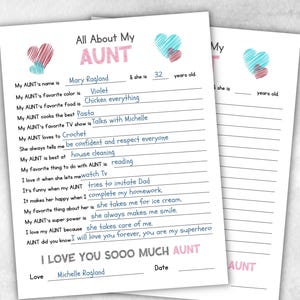 All About My
AUNT
My AUNT's name is Mary Ragland & she is 32 years old.
My AUNT's favorite color is Violet
My AUNT's favorite food is Chicken everything
My AUNT cooks the best Pasta
My AUNT's favorite TV show is Talks with Michelle
My AUNT loves to Crochet
She always tells me be confident and respect everyone
My AUNT is best at house cleaning
My favorite thing to do with AUNT is reading
I love it when she lets me watch Tv
It's funny when my AUNT tries to imitate Dad
It makes her happy when I complete my homework.
My favorite thing about her is she takes me for ice cream.
My AUNT's super power is she always makes me smile.
I love my AUNT because she takes care of me.
AUNT did you know I will love you forever, you are my superhero
I LOVE YOU SOOO MUCH AUNT
Love Michelle Ragland Date
years old.
AUNT
Date